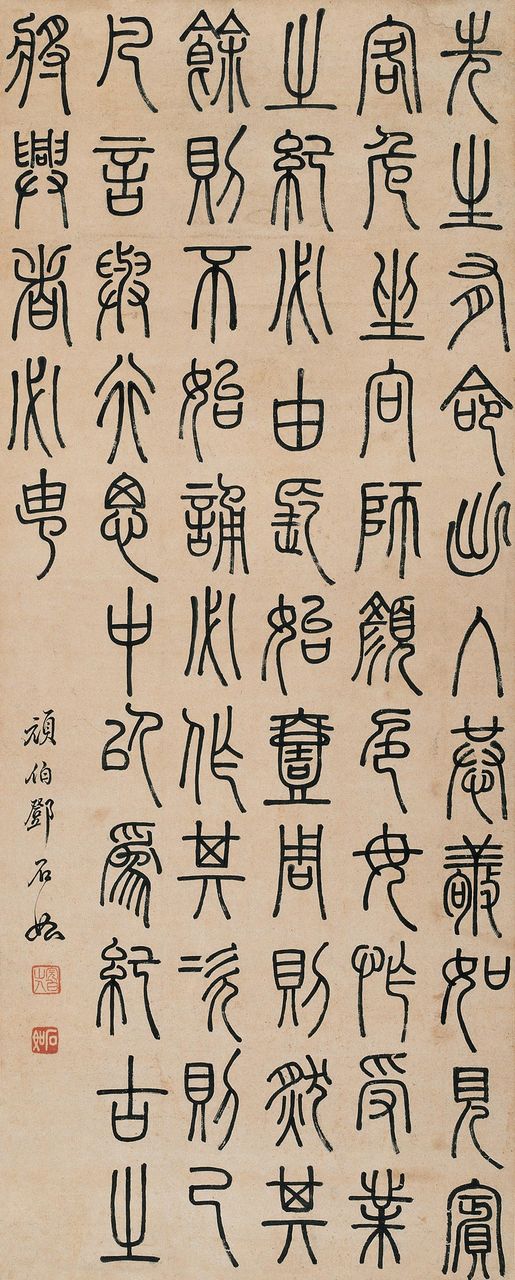 先生有命出入恭敬如見賓
客危坐向師顏色毋怍受業
之紀必由長始壹周則然其
餘則不始誦必作其次則已
凡言與行思中以爲紀古之
將興者必由
頑伯鄧石如
石如